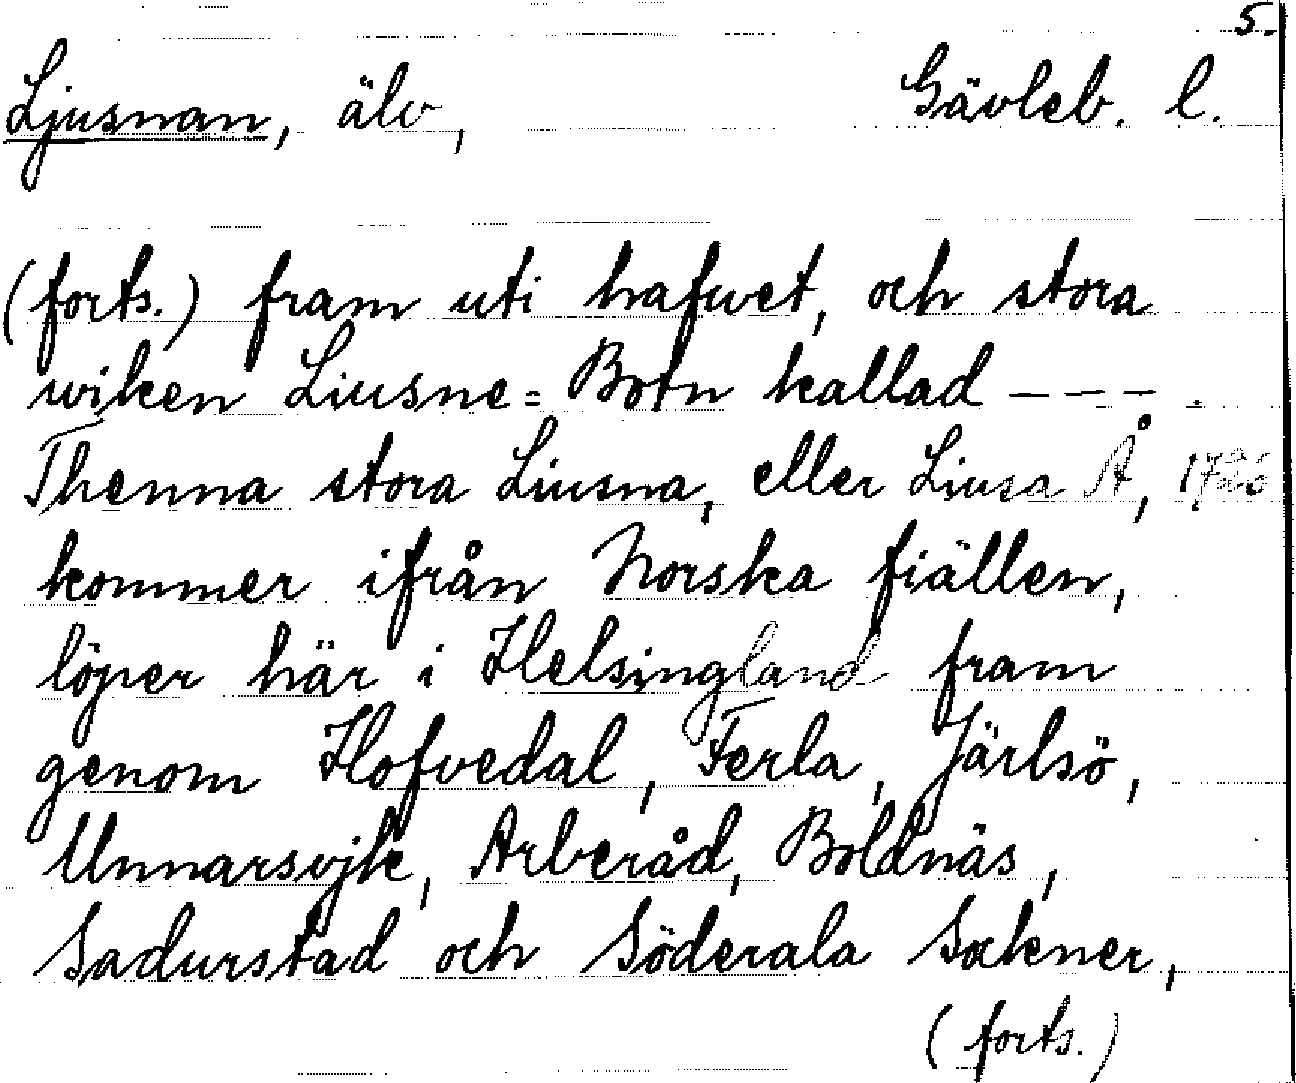 5.
Ljusnan, älv, Gävleb. l.
(forts.) fram uti hafwet, och stora
wiken Liusne= Botn kallad - - - .
Thenna stora Liusna, eller Liusa Å,
kommer ifrån Norska fiällen,
löper här i Helsingland fram
genom Hofvedal, Ferla, Järlsö,
Unnarsvjk, Arberåd, Boldnäs,
Sadurstad och Söderala Sokner,
(forts.)